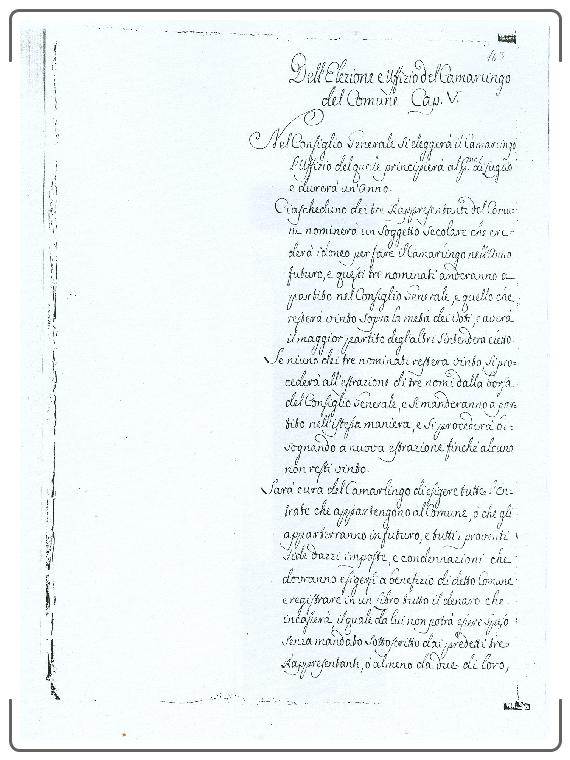 143
Dell'Elezione e Uffizio del Camarlingo
del Comune Cap. V.
Nel Consiglio Generale si eleggerà il Camarlingo
l'Uffizio del quale principierà al pmo di Luglio
e durerà un'Anno.
Ciascheduno dei tre Rappresentanti del Comu-
ne nominerà un Soggetto Secolare che cre-
derà idoneo per fare il Camarlingo nell'Anno
futuro, e questi tre nominati anderanno a
partito nel Consiglio Generale, e quello che
resterà vinto sopra la metà dei Voti, e averà
il maggior partito degl'altri s'intenderà eletto
Se niuno dei tre nominati resterà vinto si pro-
cederà all'estrazione di tre nomi dalla borsa
del Consiglio Generale, e si manderanno a par-
tito nell'istessa maniera, e si procederà bi-
sognando a nuova estrazione finché alcuno
non resti vinto.
Sarà cura del Camarlingo di esigere tutte l'En-
trate che appartengono al Comune, o che gli
apparterranno in futuro, e tutti i proventi
dazzi imposte, e condennazioni che
dovranno esigersi a benefizio di detto Comune
e registrare in un libro tutto il denaro che
incasserà, il quale da lui non potrà essere speso
senza mandato sottoscritto dai predetti tre
Rappresentanti, o almeno da due di loro,